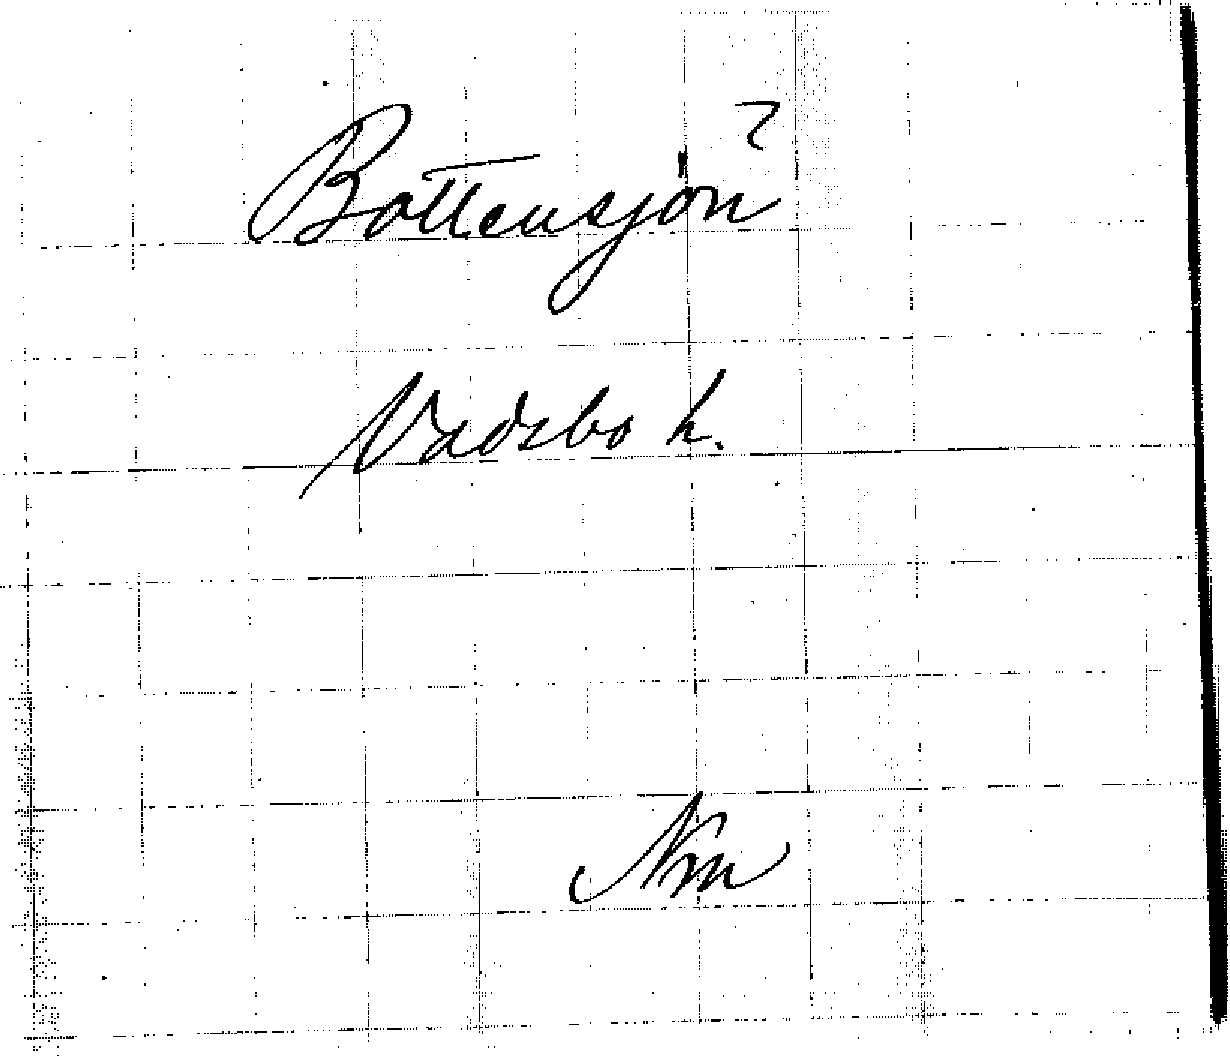 Bottensjön ?
Vadsbo h.
Nm